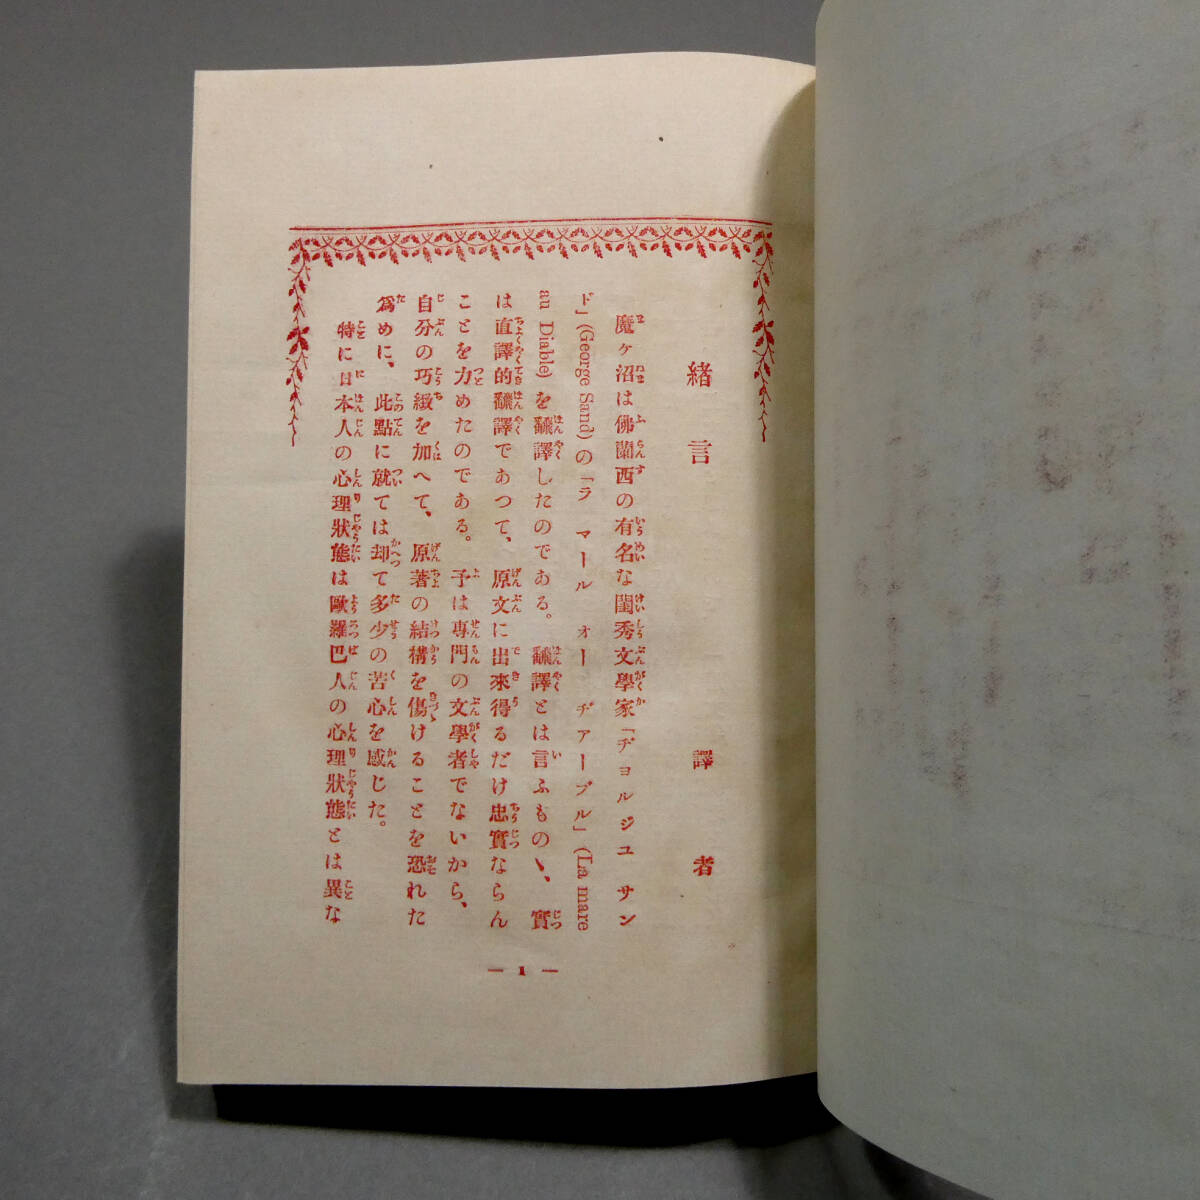 緒言
譯者
魔ヶ沼は佛蘭西の有名な閨秀文學家「ヂョルジユ サン
ド」(George Sand)の「ラ マール オー ヂアーブル」(La mare
au Diable)を飜譯したのである。飜譯とは言ふものヽ、實
は直譯的飜譯であつて、原文に出來得るだけ忠實ならん
ことを力めたのである。予は専門の文學者でないから、
自分の巧緻を加へて、原著の結構を傷けることを恐れた
爲めに、此點に就ては却て多少の苦心を感じた。
特に日本人の心理狀態は歐羅巴人の心理狀態とは異な
— 1 —